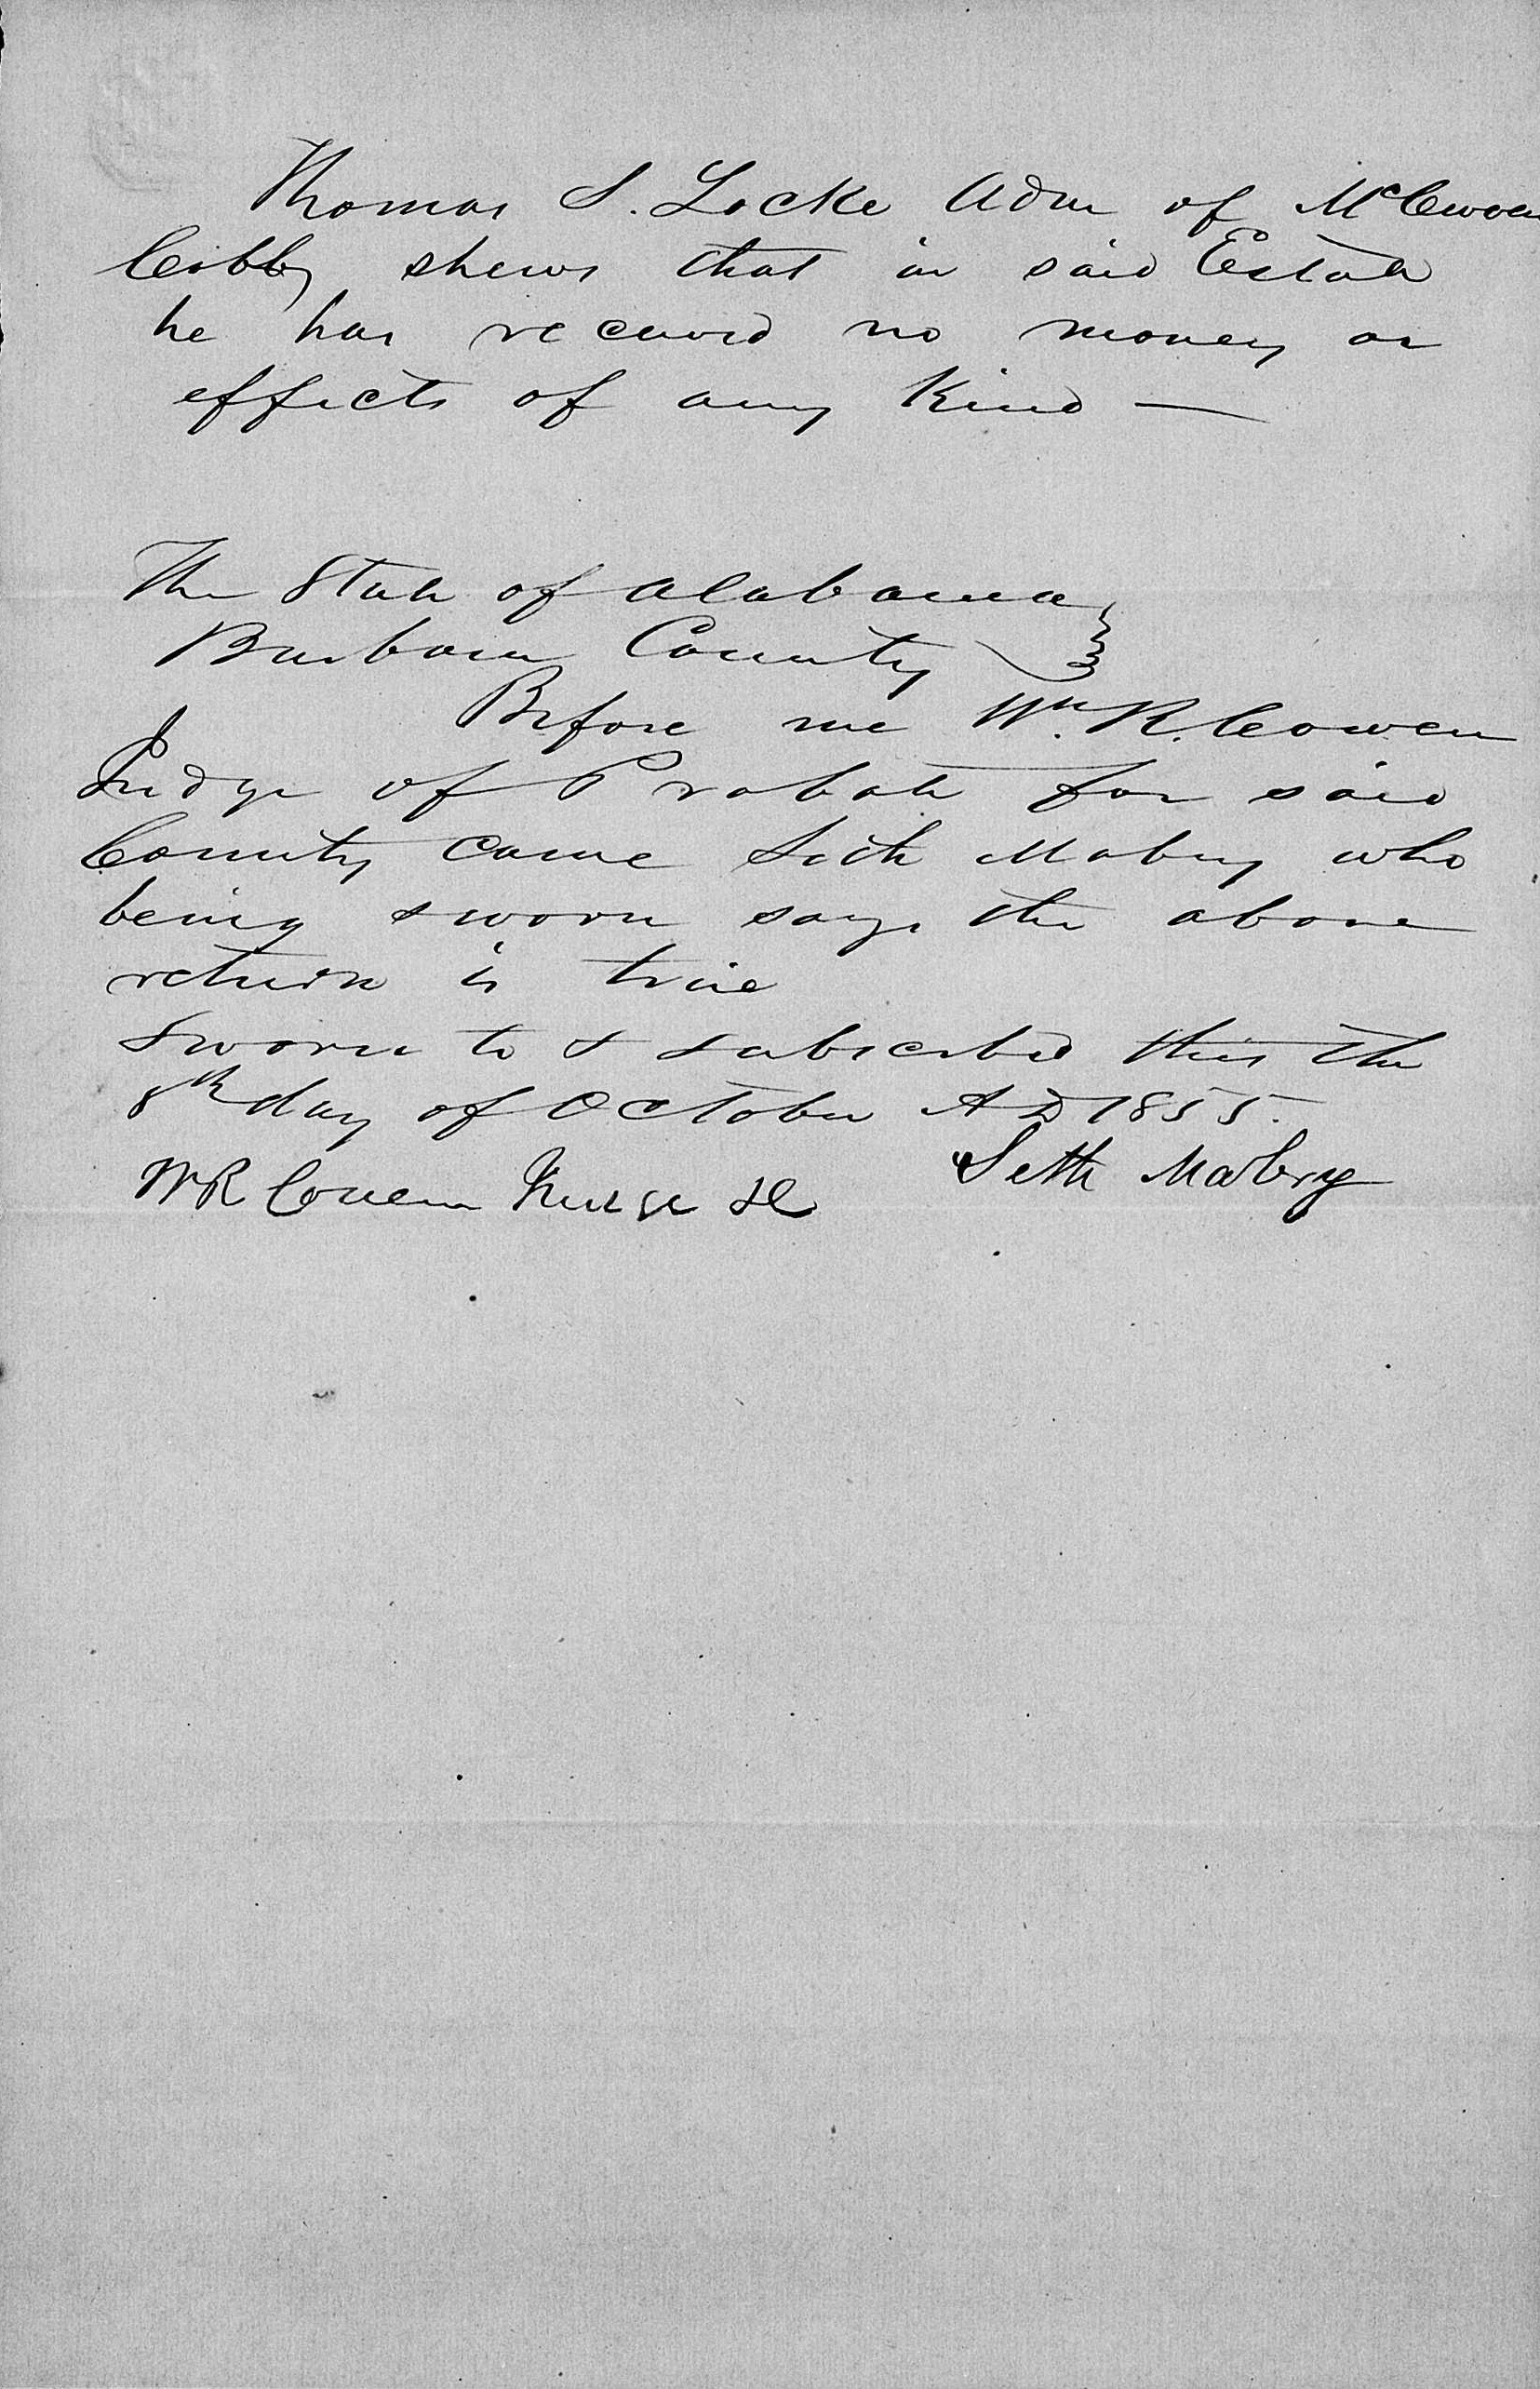 Thomas S. Locke Adm of
Cibby shews that in said Estate
he has received no money or
effects of any kind —
The State of Alabama
Barbour County
Before me Wm. R. Cowen
Judge of Probate for said
County came Seth Mabry who
being sworn says the above
return is true
Sworn to & subscribed this the
8th day of October AD 1855.
Seth Mabry
W R Cowen Judge &c